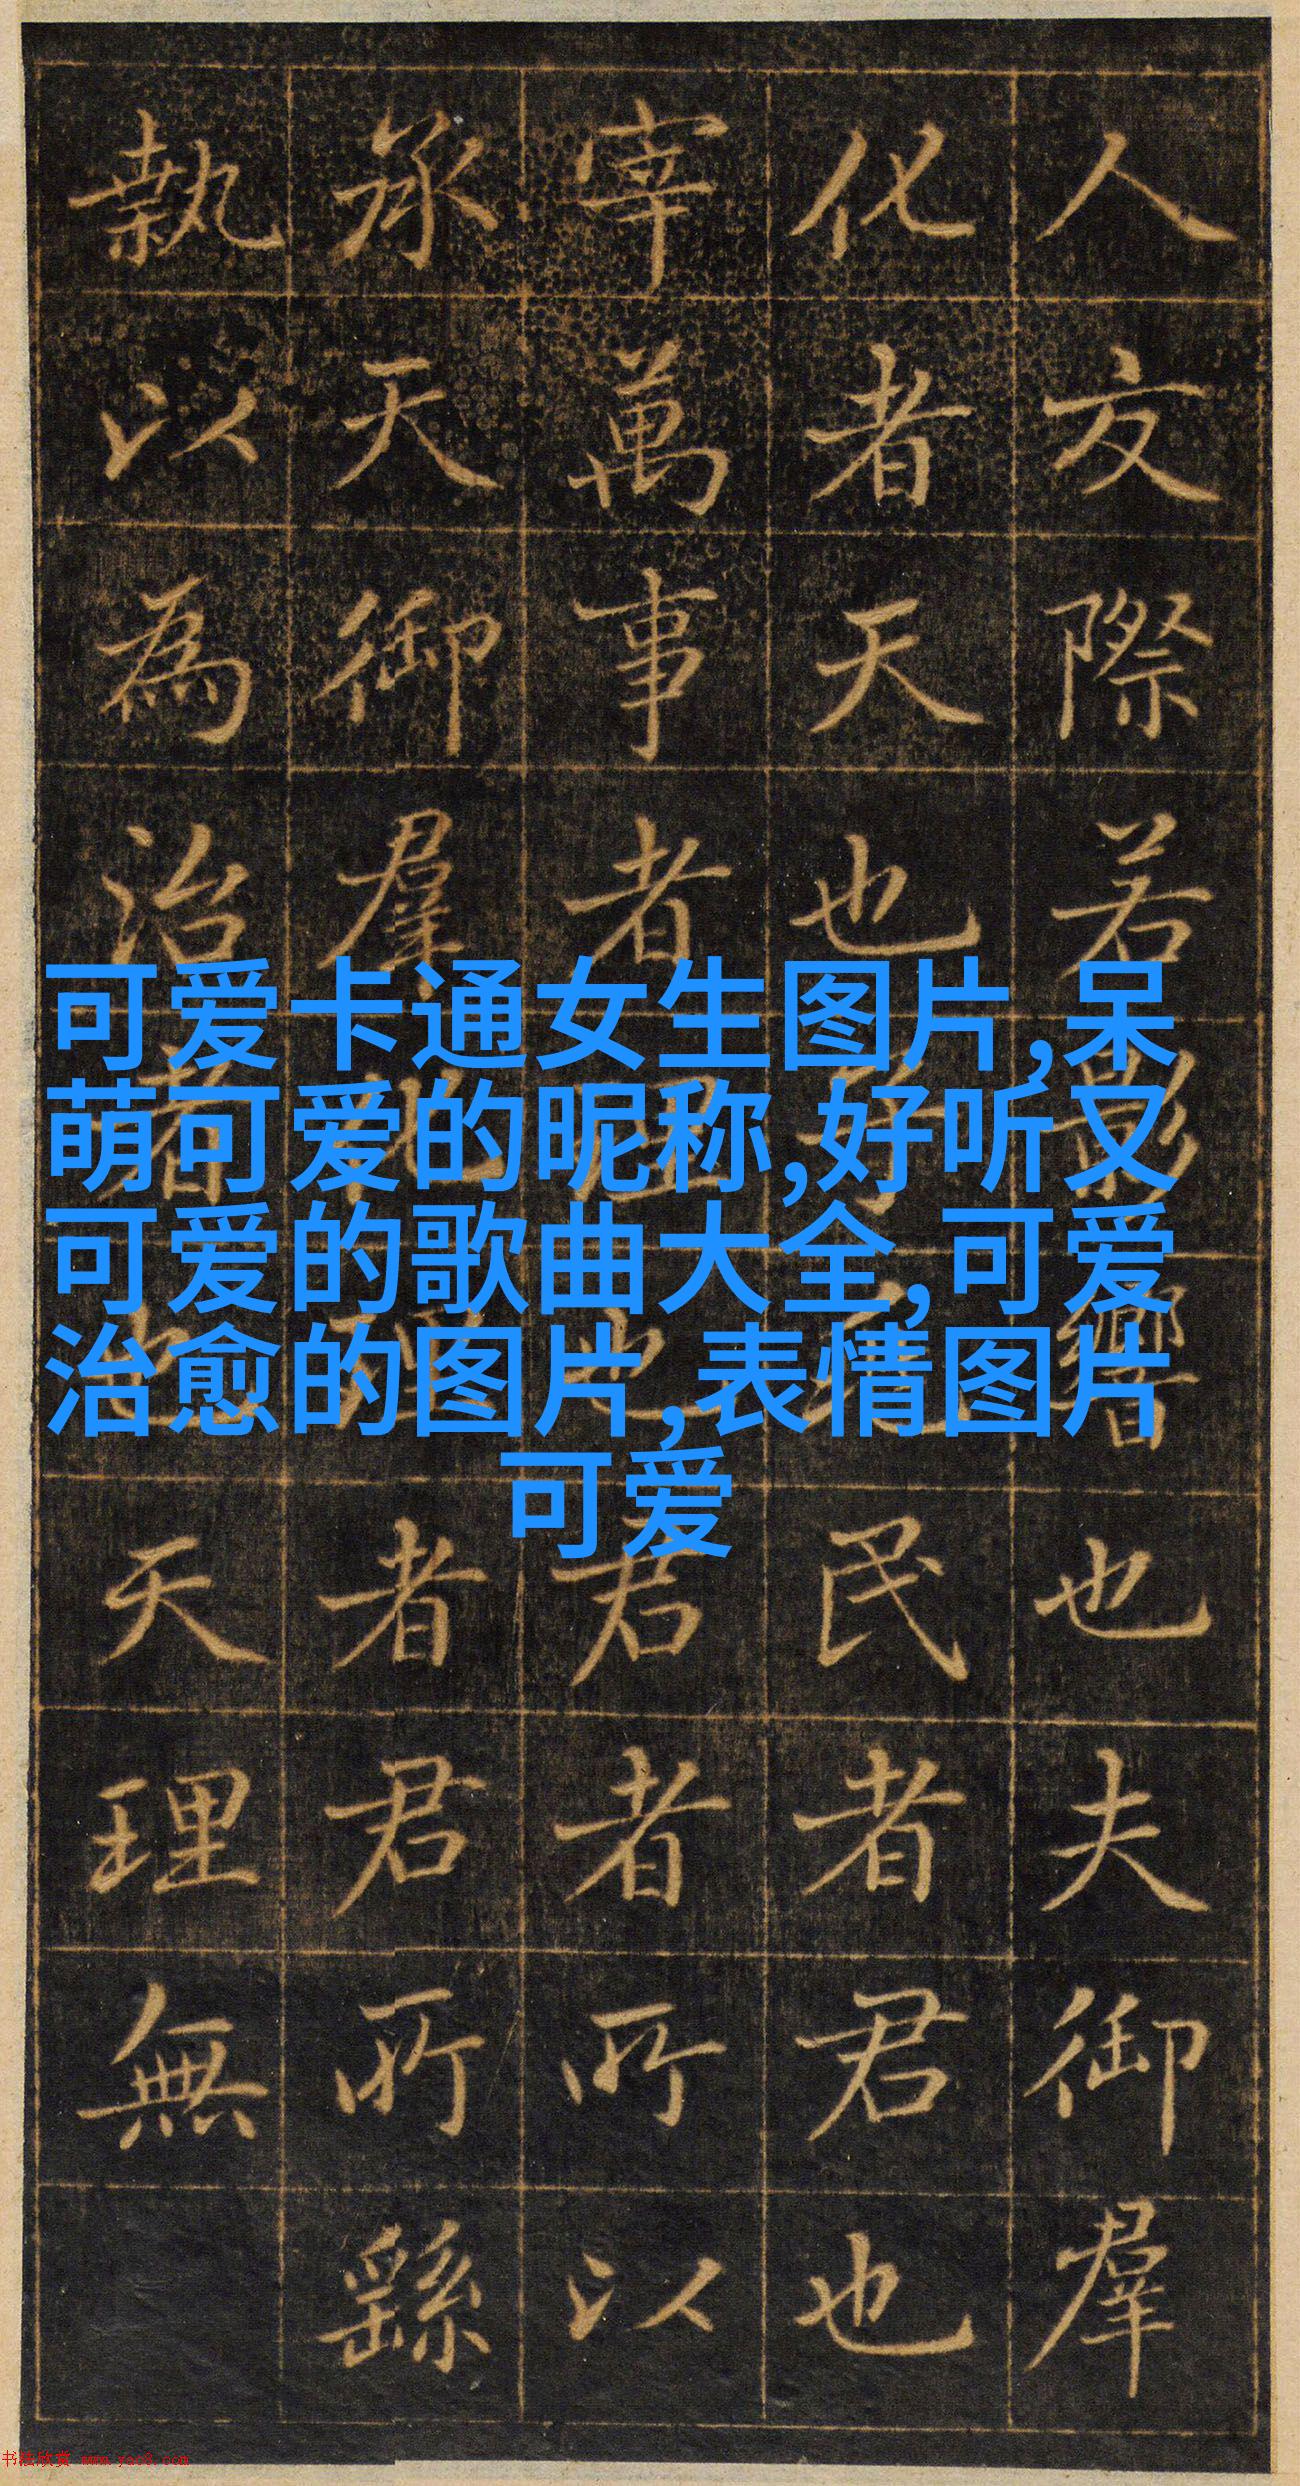 人交際若影響也夫御羣
化者天也子民者君也
宰萬事者臣也君者所以
承天御羣理者君所繇
執以為治者也天理無
可爱卡通女生图片,呆
萌可爱的昵称,好听又
可爱的歌曲大全,可爱
治愈的图片,表情图片
可爱
书法欣赏 www.yac8.com